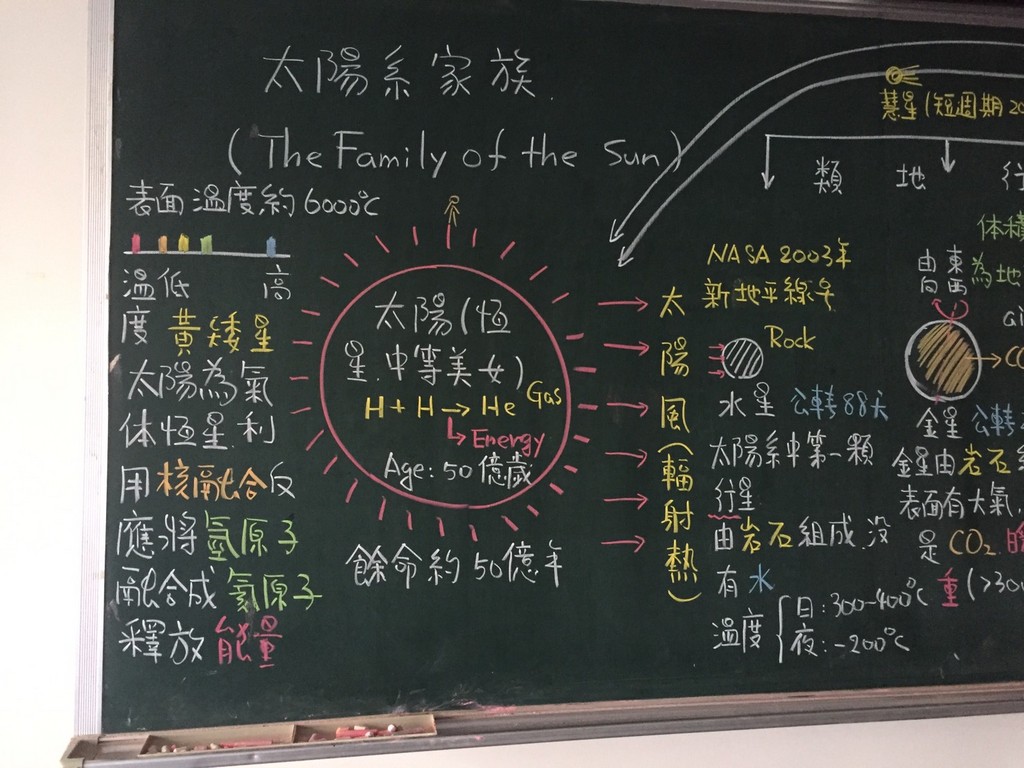 太陽系家族
(The Family of the Sun)
表面溫度約6000℃
溫低 高
度 黃矮星
太陽為氣
体恆星.利
用核融合反
應將氫原子
融合成氦原子
釋放能量
太陽(恆
星.中等美女)
H+H→He Gas
↳Energy
Age:50億歲
餘命約50億年
太陽風(輻射熱)
慧星(短週期20
類 地 行
NASA 2003年
新地平線号
Rock
水星 公轉88天
太陽系中第一顆
行星
由岩石組成.沒
有水
溫度 日:300-400℃
夜:-200℃
体積
為地
由東
向西
→CO
金星 公轉
金星由岩石
表面有大氣.
是CO2.
重(>300